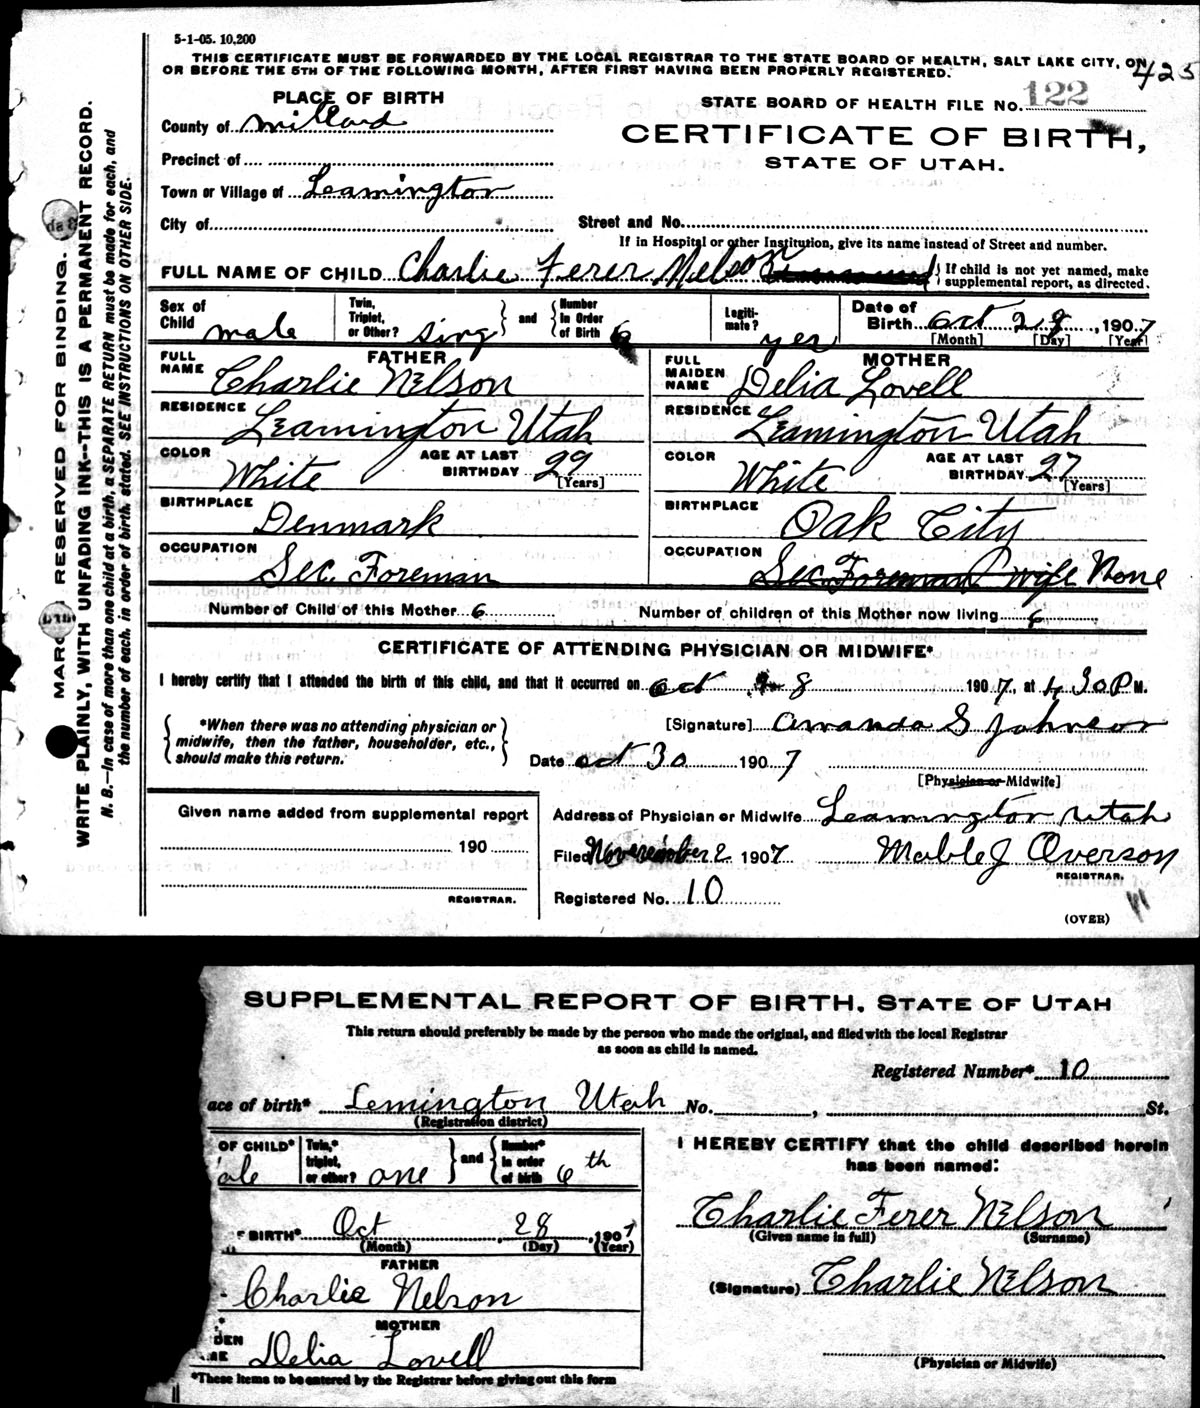 5-1-05. 10,200
425
THIS CERTIFICATE MUST BE FORWARDED BY THE LOCAL REGISTRAR TO THE STATE BOARD OF HEALTH, SALT LAKE CITY, ON
OR BEFORE THE 5TH OF THE FOLLOWING MONTH, AFTER FIRST HAVING BEEN PROPERLY REGISTERED.
PLACE OF BIRTH
STATE BOARD OF HEALTH FILE NO. 122
County of Millard
CERTIFICATE OF BIRTH,
STATE OF UTAH.
Precinct of
Town or Village of Leamington
City of
Street and No.
If in Hospital or other Institution, give its name instead of Street and number.
FULL NAME OF CHILD Charlie Ferer Nelson
If child is not yet named, make
supplemental report, as directed.
Sex of Child male
Twin, Triplet, or Other? sing
and
Number in Order of Birth 6
Legiti-mate? yes
Date of Birth Oct 28, 1907
[Month] [Day] [Year]
FATHER
FULL NAME Charlie Nelson
RESIDENCE Leamington Utah
COLOR White
AGE AT LAST BIRTHDAY 29
[Years]
BIRTHPLACE Denmark
OCCUPATION Sec. Foreman
MOTHER
FULL MAIDEN NAME Delia Lovell
RESIDENCE Leamington Utah
COLOR White
AGE AT LAST BIRTHDAY 27
[Years]
BIRTHPLACE Oak City
OCCUPATION Sec. Foreman wife None
Number of Child of this Mother 6
Number of children of this Mother now living 6
CERTIFICATE OF ATTENDING PHYSICIAN OR MIDWIFE*
I hereby certify that I attended the birth of this child, and that it occurred on oct 28 1907, at 4 30 P M.
*When there was no attending physician or
midwife, then the father, householder, etc.,
should make this return.
[Signature] Amanda S Johnson
Date oct 30 1907
[Physician or Midwife]
Given name added from supplemental report
190
REGISTRAR.
Address of Physician or Midwife Leamington Utah
Filed November 2 1907 Mable J Overson
REGISTRAR.
Registered No. 10
(OVER)
MARGIN RESERVED FOR BINDING.
WRITE PLAINLY, WITH UNFADING INK--THIS IS A PERMANENT RECORD.
N. B.—In case of more than one child at a birth, a SEPARATE RETURN must be made for each, and
the number of each, in order of birth, stated. SEE INSTRUCTIONS ON OTHER SIDE.
SUPPLEMENTAL REPORT OF BIRTH, STATE OF UTAH
This return should preferably be made by the person who made the original, and filed with the local Registrar
as soon as child is named.
Registered Number* 10
ace of birth* Lemington Utah No. , St.
(Registration district)
OF CHILD* ale
Twin,* triplet, or other? one
and
Number* in order of birth 6th
F BIRTH* Oct 28, 1907
(Month) (Day) (Year)
FATHER
Charlie Nelson
MOTHER
DEN
ME Delia Lovell
*These items to be entered by the Registrar before giving out this form
I HEREBY CERTIFY that the child described herein
has been named:
Charlie Ferer Nelson
(Given name in full) (Surname)
(Signature) Charlie Nelson
(Physician or Midwife)